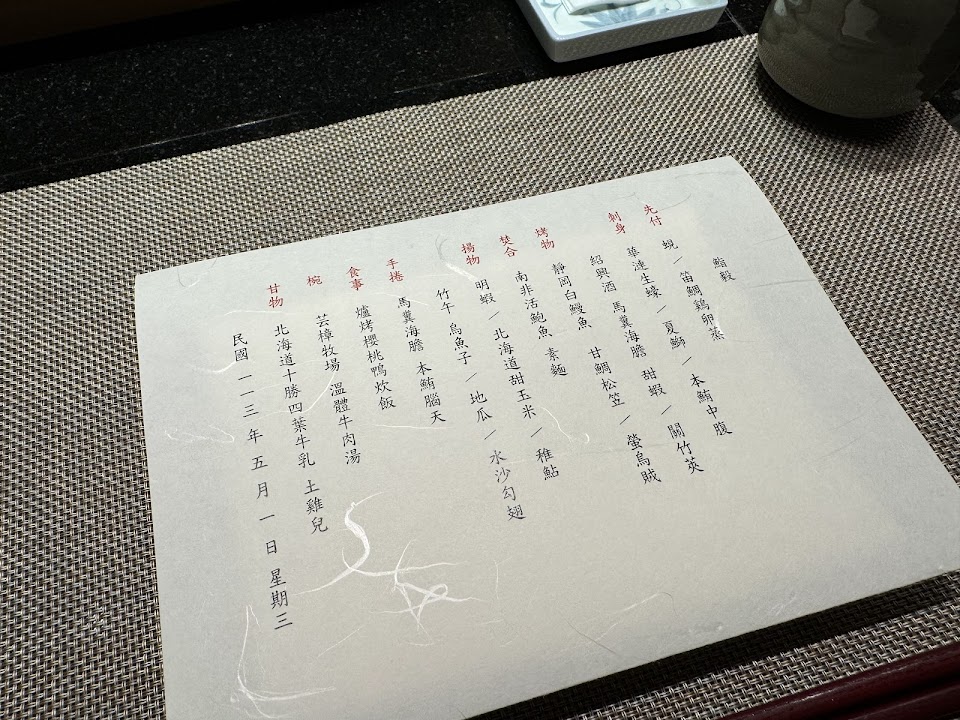 鮨毅
先付 蜆/笛鯛鶏卵蒸
刺身 華漣生蠔/夏鰤/本鮪中腹
紹興酒 馬糞海膽 甜蝦/關竹莢
烤物 靜岡白鰻魚 甘鯛松笠/螢烏賊
焚合 南非活鮑魚 素麵
揚物 明蝦/北海道甜玉米/稚鮎
竹午 烏魚子/地瓜/水沙勾翅
手捲 馬糞海膽 本鮪腦天
食事 爐烤櫻桃鴨炊飯
椀 芸樟牧場 溫體牛肉湯
甘物 北海道十勝四葉牛乳 土雞兒
民國 一一三 年 五 月 一 日 星期三